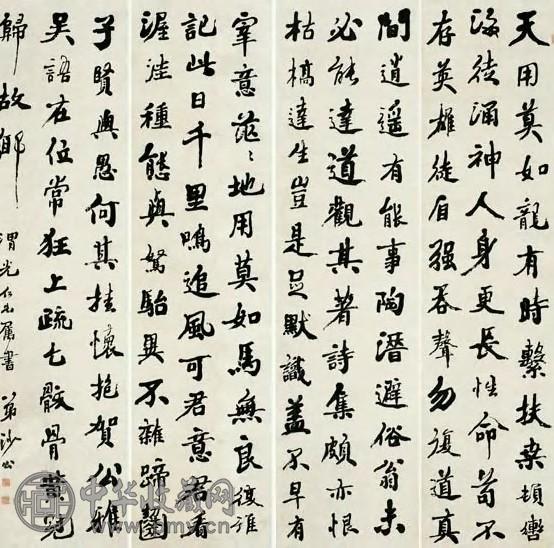 天用莫如龍有時繫扶桑頓轡
海徒涌神人身更長性命苟不
存英雄徒自强吞聲勿復道真
間逍遥有能事陶潛避俗翁未
必能達道觀其著詩集頗亦恨
枯槁達生豈是足默識蓋不早有
宰意茫〻地用莫如馬無良復誰
記此日千里鳴追風可君意君看
渥洼種態與駑駘異不雜蹄齧
子賢與愚何其挂懷抱賀公雅
吴語在位常狂上疏乞骸骨黄冠
歸故鄉
渭光仁兄屬書 弟
中华收藏网